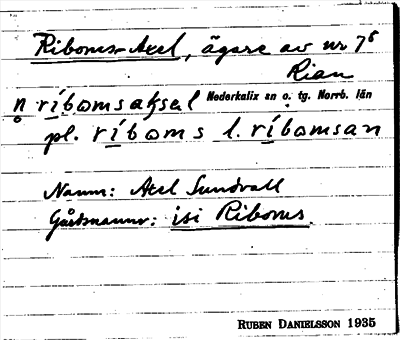 Riboms-Axel, ägare av nr 7⁵
Rian
n ríbomsaksel Nederkalix sn o. tg. Norrb. län
pl. ríboms l. ríbomsan
Namn: Axel Sundvall
Gårdsnamn: isi Riboms.
RUBEN DANIELSSON 1935